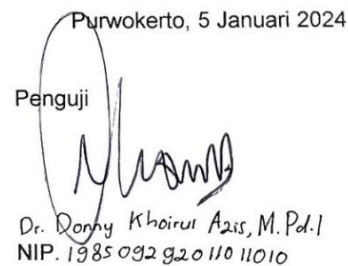 Purwokerto, 5 Januari 2024
Penguji
Dr. Donny Khoirul Azis, M.Pd.I
NIP. 19850929201101 1010